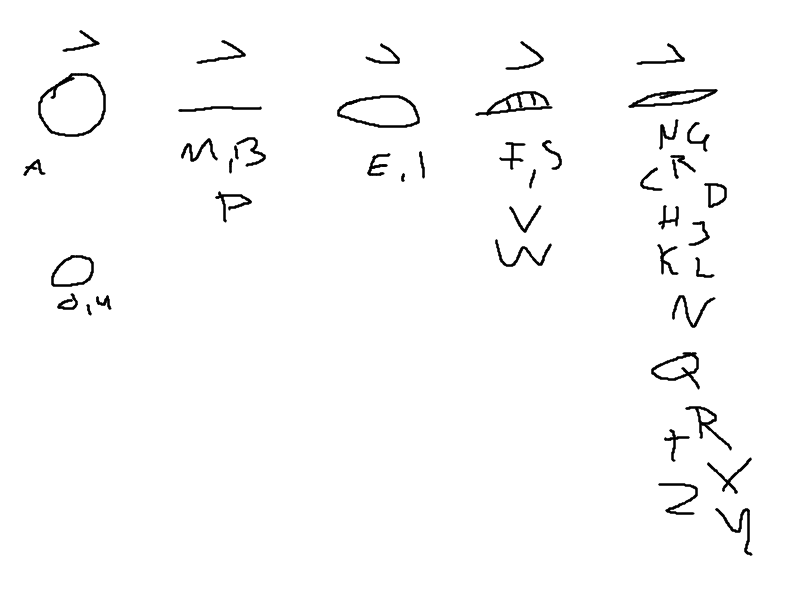 A
O,U
M,B
P
E,I
F,S
V
W
NG
C R D
H J
K L
N
Q
T R
X
Z Y